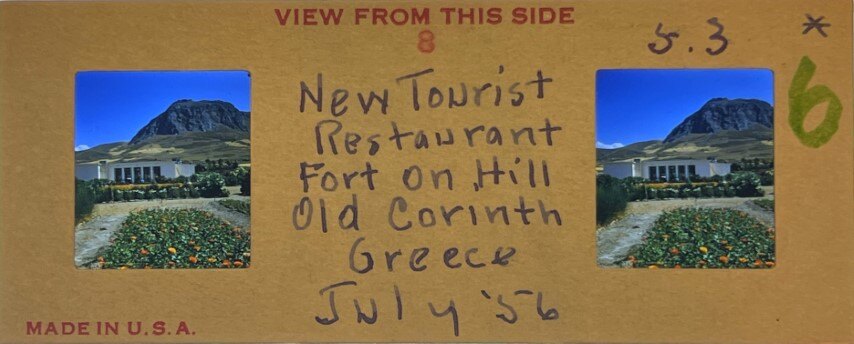 VIEW FROM THIS SIDE
8
5.3 *
6
New Tourist
Restaurant
Fort on Hill
Old Corinth
Greece
July '56
MADE IN U.S.A.